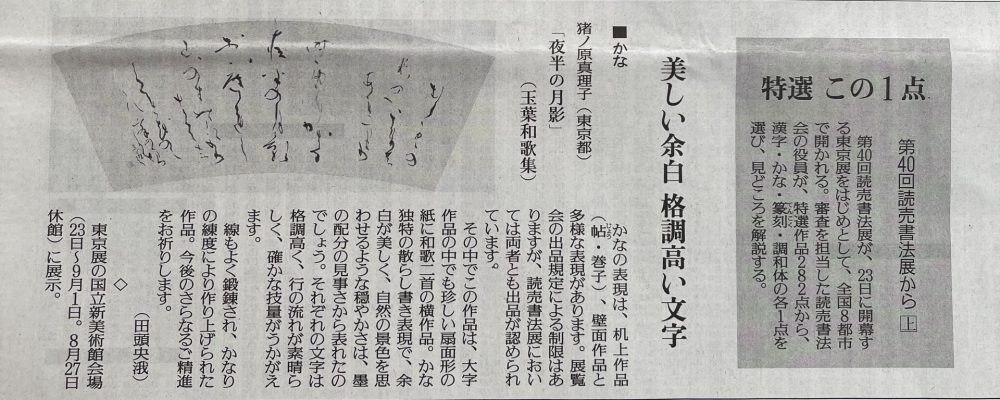 特選 この1点
第40回読売書法展から 上
第40回読売書法展が、23日に開幕す
る東京展をはじめとして、全国8都市
で開かれる。審査を担当した読売書法
会の役員が、特選作品282点から、
漢字・かな・篆刻・調和体の各1点を
選び、見どころを解説する。
美しい余白 格調高い文字
■かな
猪ノ原真理子（東京都）
「夜半の月影」
（玉葉和歌集）
かなの表現は、机上作品
（帖・巻子）、壁面作品と
多様な表現があります。展覧
会の出品規定による制限はあ
りますが、読売書法展におい
ては両者とも出品が認められ
ています。
その中でこの作品は、大字
作品の中でも珍しい扇面形の
紙に和歌二首の横作品。かな
独特の散らし書き表現で、余
白が美しく、自然の景色を思
わせるような穏やかさは、墨
の配分の見事さから表れたの
でしょう。それぞれの文字は
格調高く、行の流れが素晴ら
しく、確かな技量がうかがえ
ます。
線もよく鍛錬され、かなり
の練度により作り上げられた
作品。今後のさらなるご精進
をお祈りします。
（田頭央浪）
◇
東京展の国立新美術館会場
（23日～9月1日。8月27日
休館）に展示。